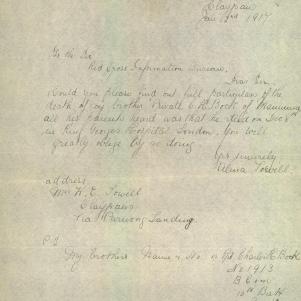 Claypans
Jan 1917
To the Sir
Red Cross Information Bureau.
Dear Sir,
Would you please find out full particulars of the
death of my brother Private C R Book of Mannum
all his parents heard was that he died on Dec 8th
in King Georges Hospital London. You will
greatly oblige by so doing
yrs sincerely
Powell
address
Mrs W. E. Powell
Claypans
via Purnong Landing.
P.S
My brothers Name & No. is Pte Charles R Book
No 1913
B Coy
10th Batt